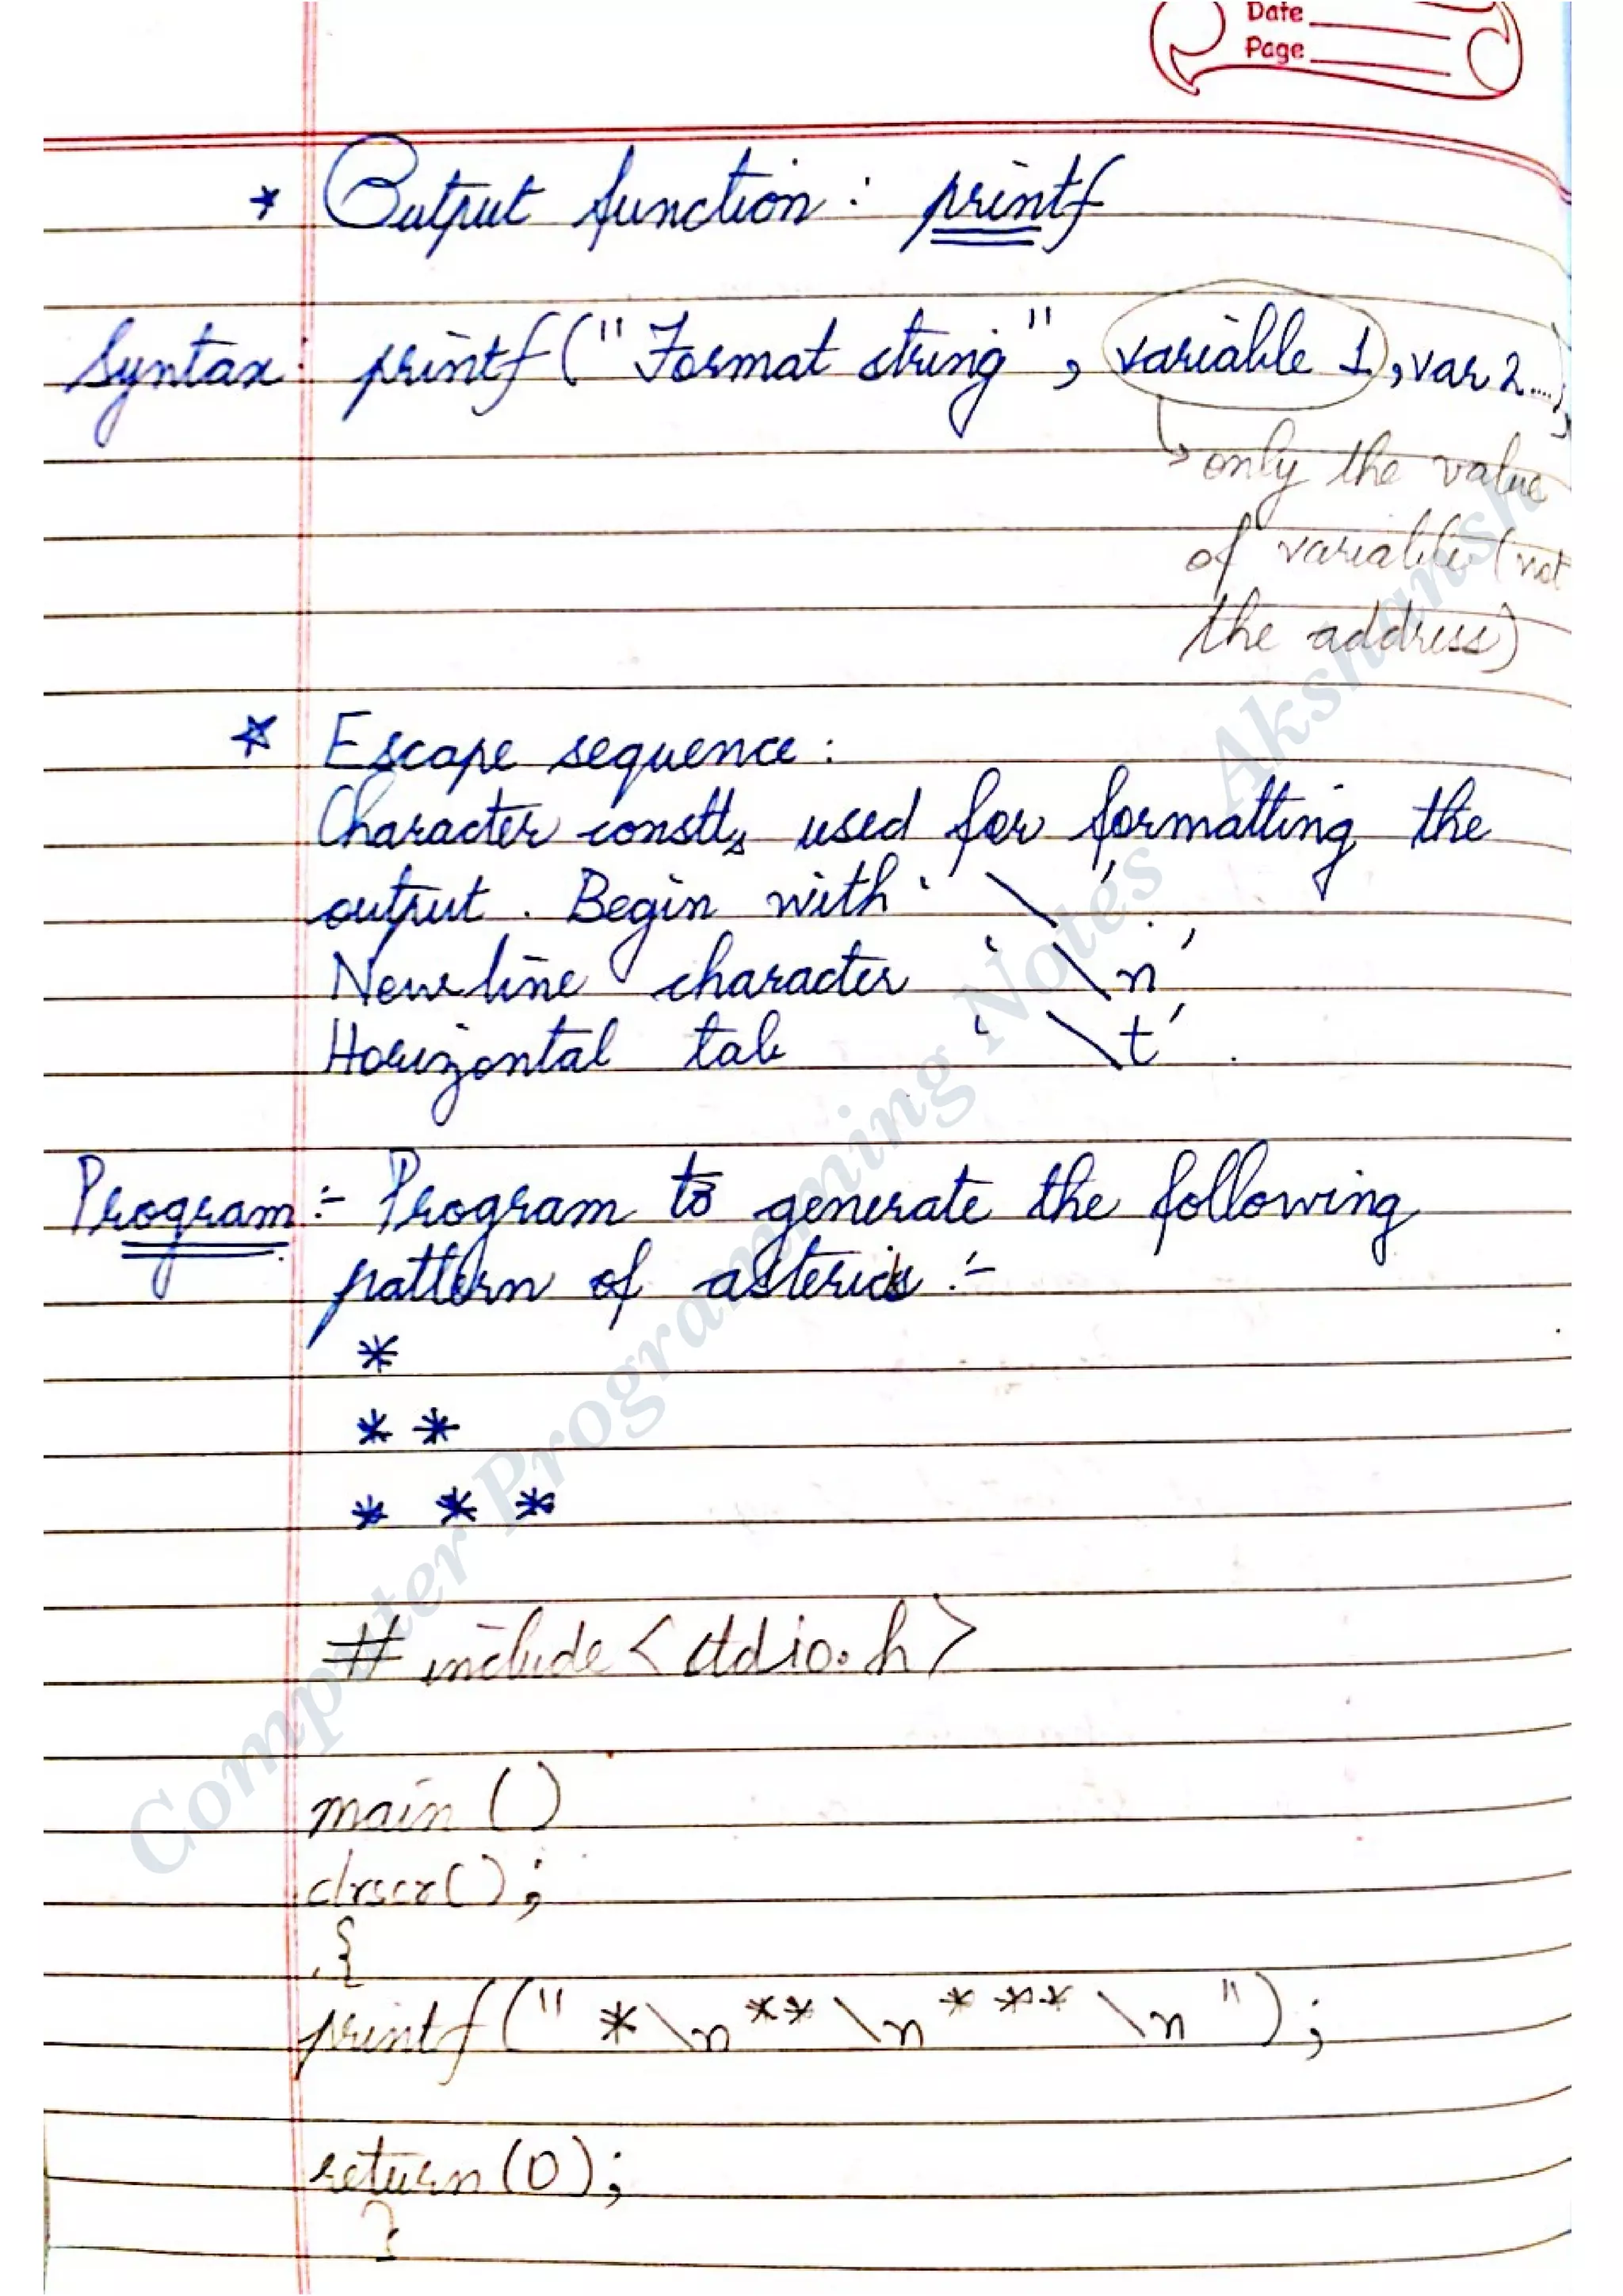 Date
Page
* Output function : printf
Syntax : printf ("Format string", variable 1, var 2....);
only the value
of variable (not
the address)
* Escape sequence :
Character constts used for formatting the
output . Begin with ' \ '
New line character ' \n '
Horizontal tab ' \t ' .
Program :- Program to generate the following
pattern of astericks :-
*
* *
* * *
# include < stdio.h >
main ()
clrscr() ;
{
printf (" * \n ** \n *** \n ") ;
return (0) ;
}
Computer Programming Notes Akshansh